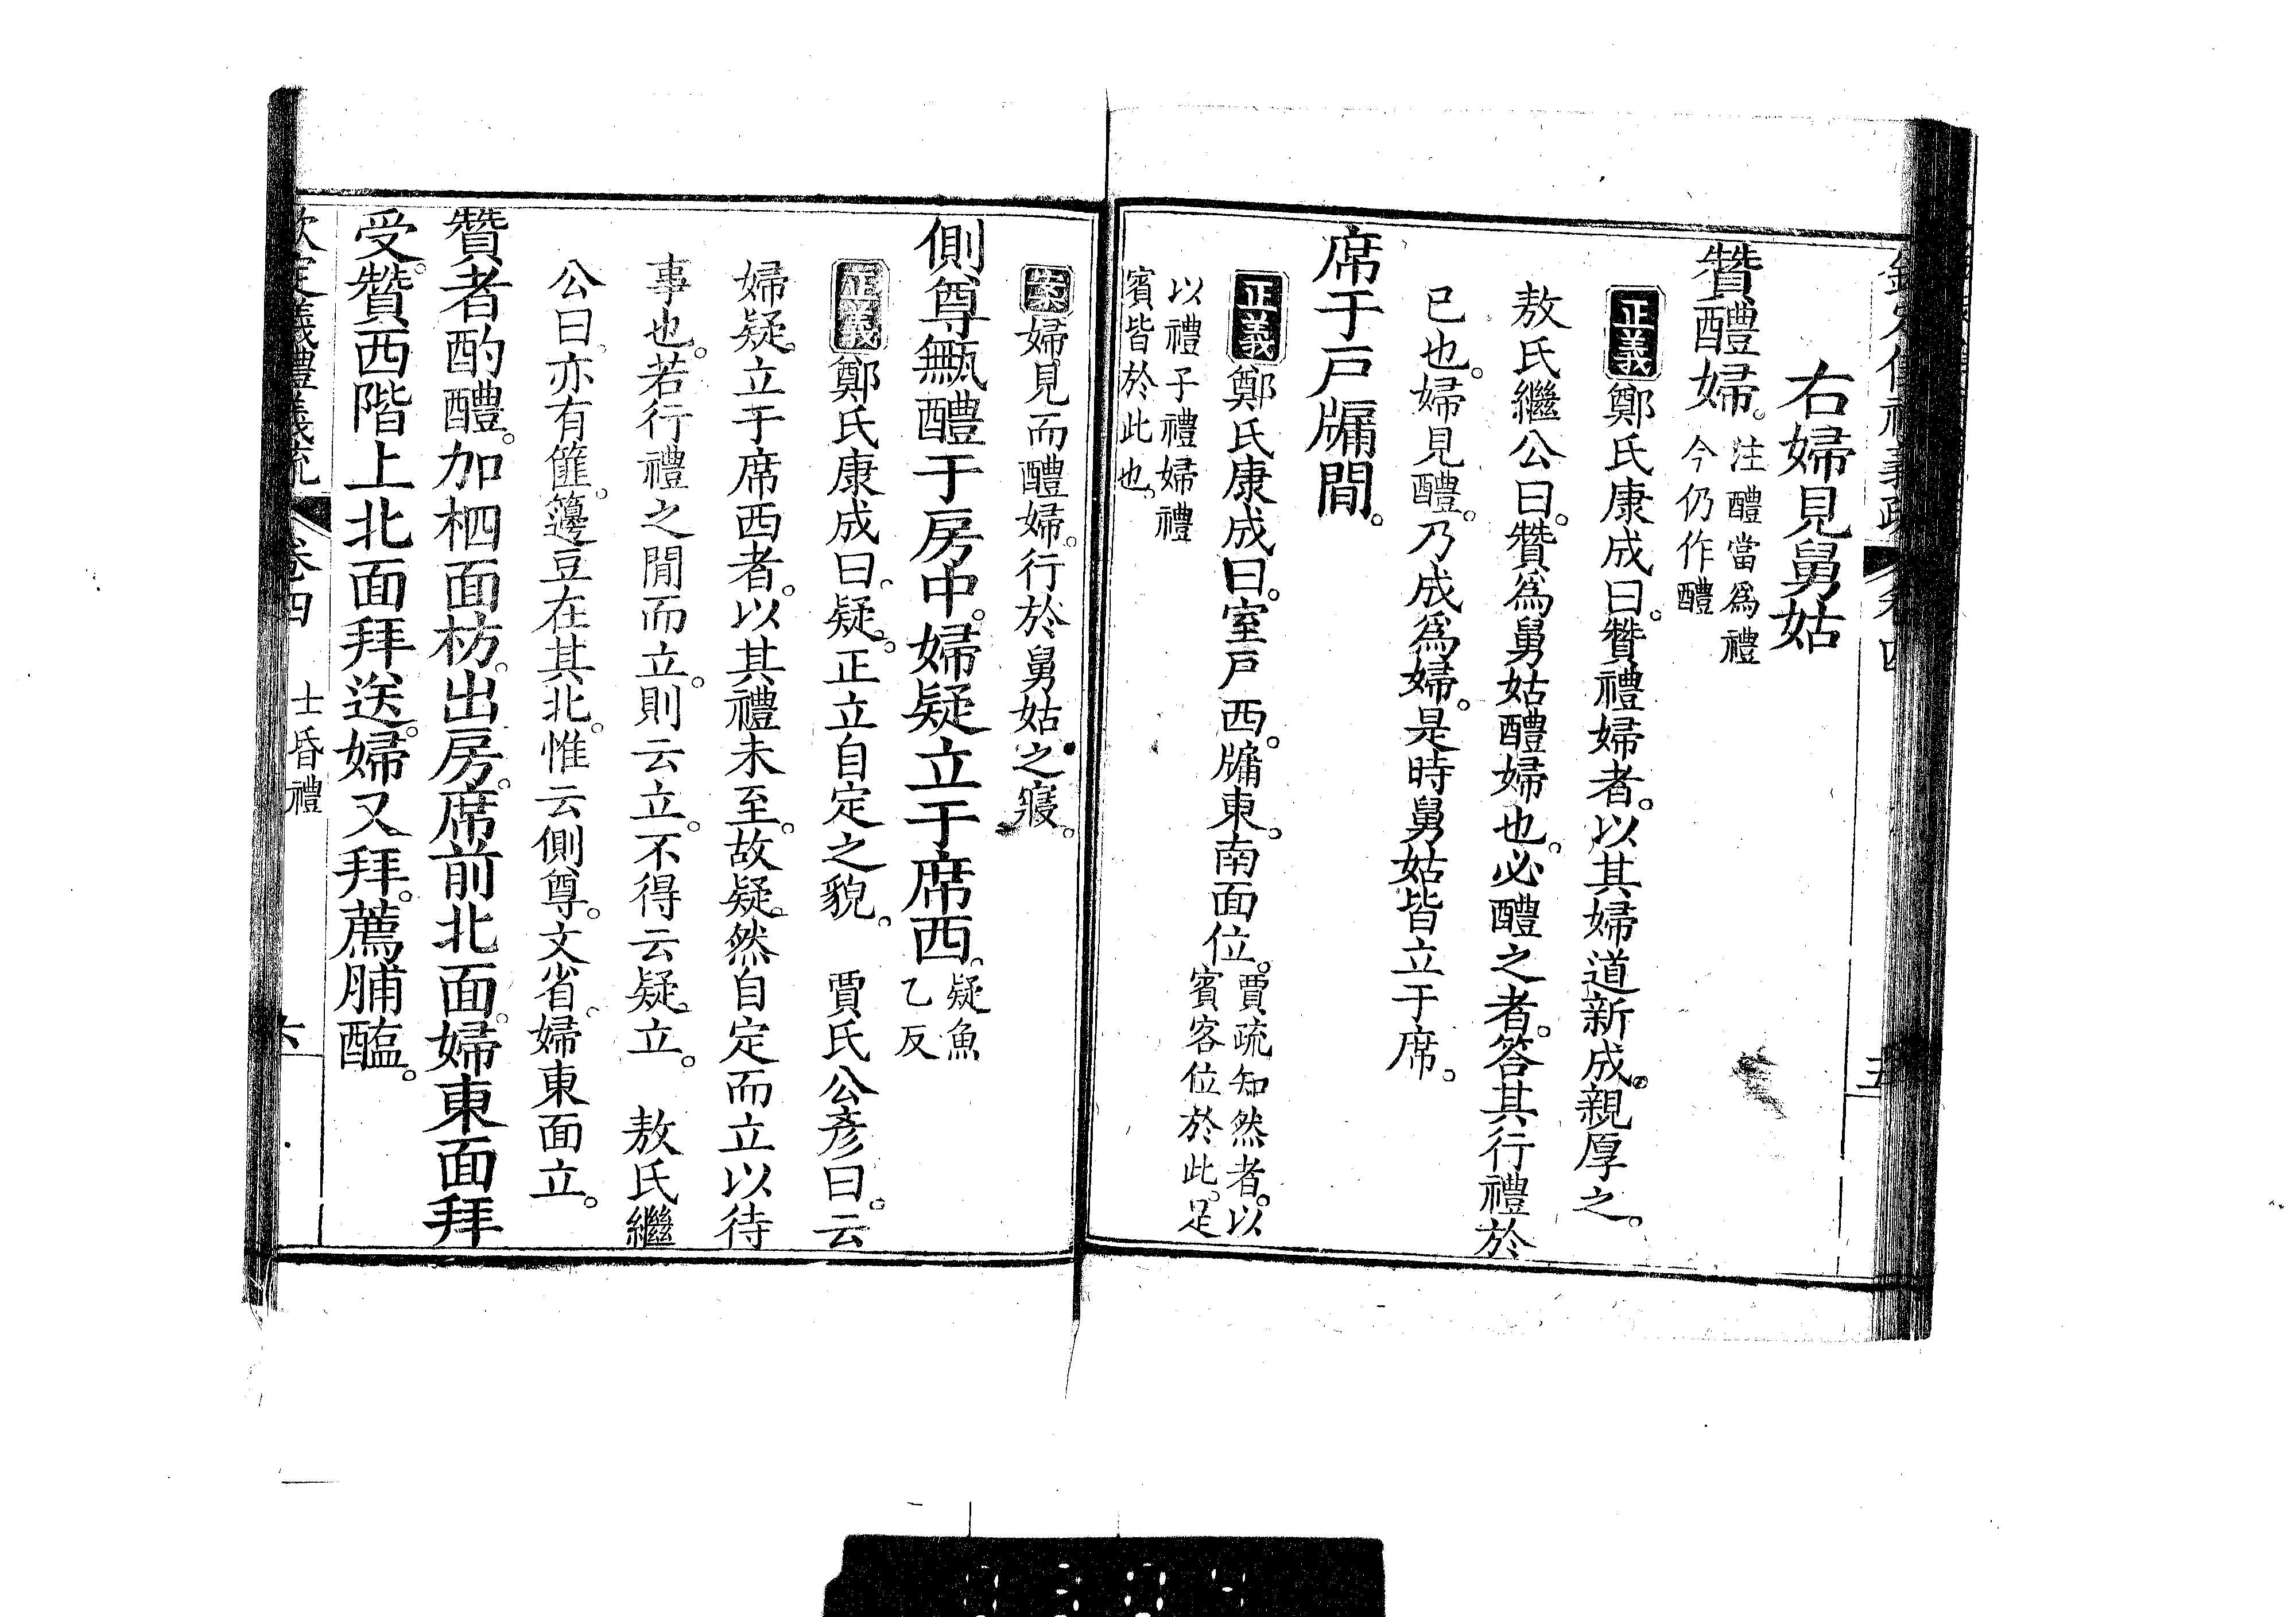 右婦見舅姑
贊醴婦。注醴當爲禮
今仍作醴
正義鄭氏康成曰。贊禮婦者。以其婦道新成。親厚之。
敖氏繼公曰。贊爲舅姑醴婦也。必醴之者。答其行禮於
已也。婦見醴。乃成爲婦。是時舅姑皆立于席。
席于戸牖閒。
正義鄭氏康成曰。室戸西。牖東。南面位。賈疏知然者。以
賓客位於此。足
以禮子禮婦禮
賓皆於此也。
案婦見而醴婦。行於舅姑之寢。
側尊甒醴于房中。婦疑立于席西。疑魚
乙反
正義鄭氏康成曰。疑。正立自定之貌。　賈氏公彥曰。云
婦疑立于席西者。以其禮未至。故疑。然自定而立以待
事也。若行禮之閒而立。則云立。不得云疑立。　敖氏繼
公曰。亦有篚。籩豆在其北。惟云側尊。文省。婦東面立。
贊者酌醴。加柶面枋。出房。席前北面。婦東面拜
受。贊西階上北面拜送。婦又拜。薦脯醢。
欽定儀禮義疏　卷四　士昏禮　六